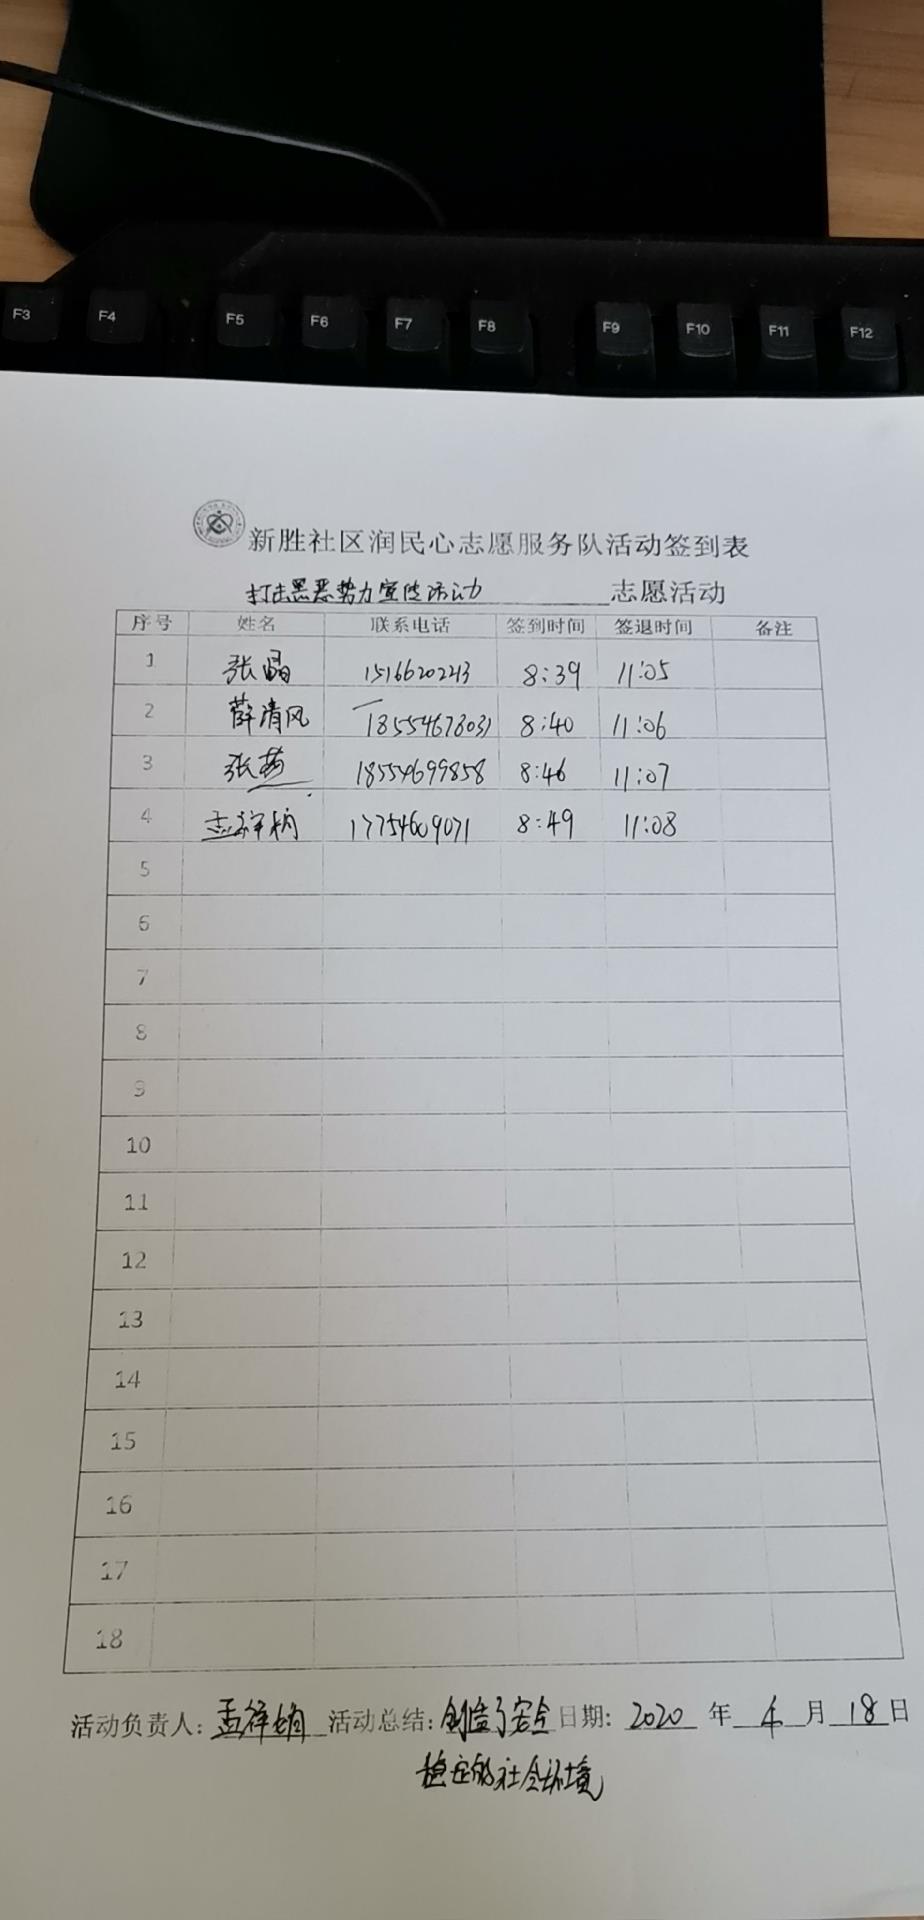 F3 F4 F5 F6 F7 F8 F9 F10 F11 F12
新胜社区润民心志愿服务队活动签到表
打击黑恶势力宣传活动 志愿活动
序号 姓名 联系电话 签到时间 签退时间 备注
1 张晶 15166202243 8:39 11:05
2 薛清风 18554678031 8:40 11:06
3 张茜 18554699858 8:46 11:07
4 孟祥娟 17754609071 8:49 11:08
5
6
7
8
9
10
11
12
13
14
15
16
17
18
活动负责人: 孟祥娟 活动总结: 创造了安全 日期: 2020 年 4 月 18 日
稳定的社会环境